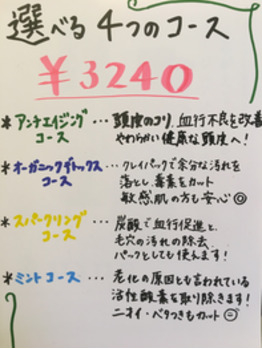 選べる 4つのコース
¥3240
*アンチエイジングコース … 頭皮のコリ、血行不良を改善
やわらかい健康な頭皮へ!
*オーガニックデトックスコース … クレイパックで余分な汚れを
落とし、毒素をカット
敏感肌の方も安心◎
*スパークリングコース … 炭酸で血行促進と、
毛穴の汚れの除去。
パックとしても使えます!
*ミントコース … 老化の原因とも言われている
活性酸素を取り除きます!
ニオイ・ベタつきもカット